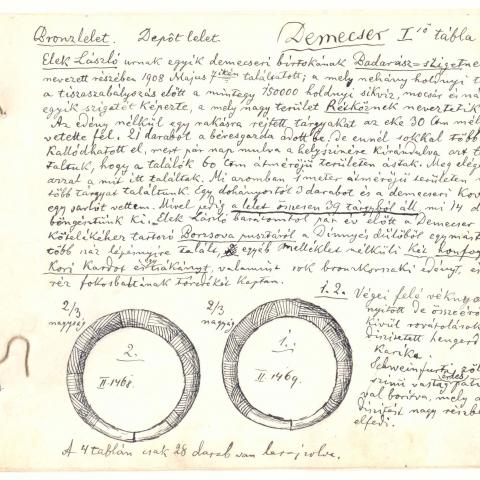 Bronzlelet. Depôt lelet. Demecser I ső tábla
Elek László urnak egyik demecseri birtokának Badarász=szigetne
nevezett részében 1908 Majus 7 ikén találtatott; a mely néhány holdnyi t
a tiszaszabályozás előtt a mintegy 150000 holdnyi sikviz, mocsár és ná
egyik szigetét képezte, a mely nagy terület Rétköznek neveztetik
Az edény nélkül egy rakásra rejtett tárgyakat az eke 30 cm mély
vetette fel. 21 darabot a béresgazda adott be, de ennél sokkal több
kallódhatott el, mert pár nap mulva a helyszinére kirándulva, azt t
taltuk, hogy a találók 60 cm átmérőjü területen ástak. Meg elég
azzal a mit itt találtak. Mi azomban 5 meter átmérőjü területen
több tárgyat találtunk. Egy dohányostól 3 darabot és a demecseri Kov
egy sarlót vettem. Mivel pedig a lelet összesen 39 tárgyból áll, mi 14 d
böngésztünk ki. Elek László barátomtól pár év előtt a Demecser
kötelékéhez tartozó Borzsova pusztáról a Dinnyés dülőből egymást
több száz lépésnyire talált, egyéb melléklet nélküli két honfog
kori kardot és egy csákányt, valamint sok bronzkorszaki edényt, é
réz fokosbaltának töredékét kaptam.
1. 2. Végei felé vékonya
nyitott de összeérő
kivül rovátolások
diszitett hengerd
karika.
Schweinfurti zöl
szinü vastag érdes pati
val boritva, mely a
diszitést nagy részbe
elfedi.
2/3
nagyság
2.
II. 1468.
2/3
nagyság
1.
II 1469.
A 4 táblán csak 28 darab van lerajzolva.